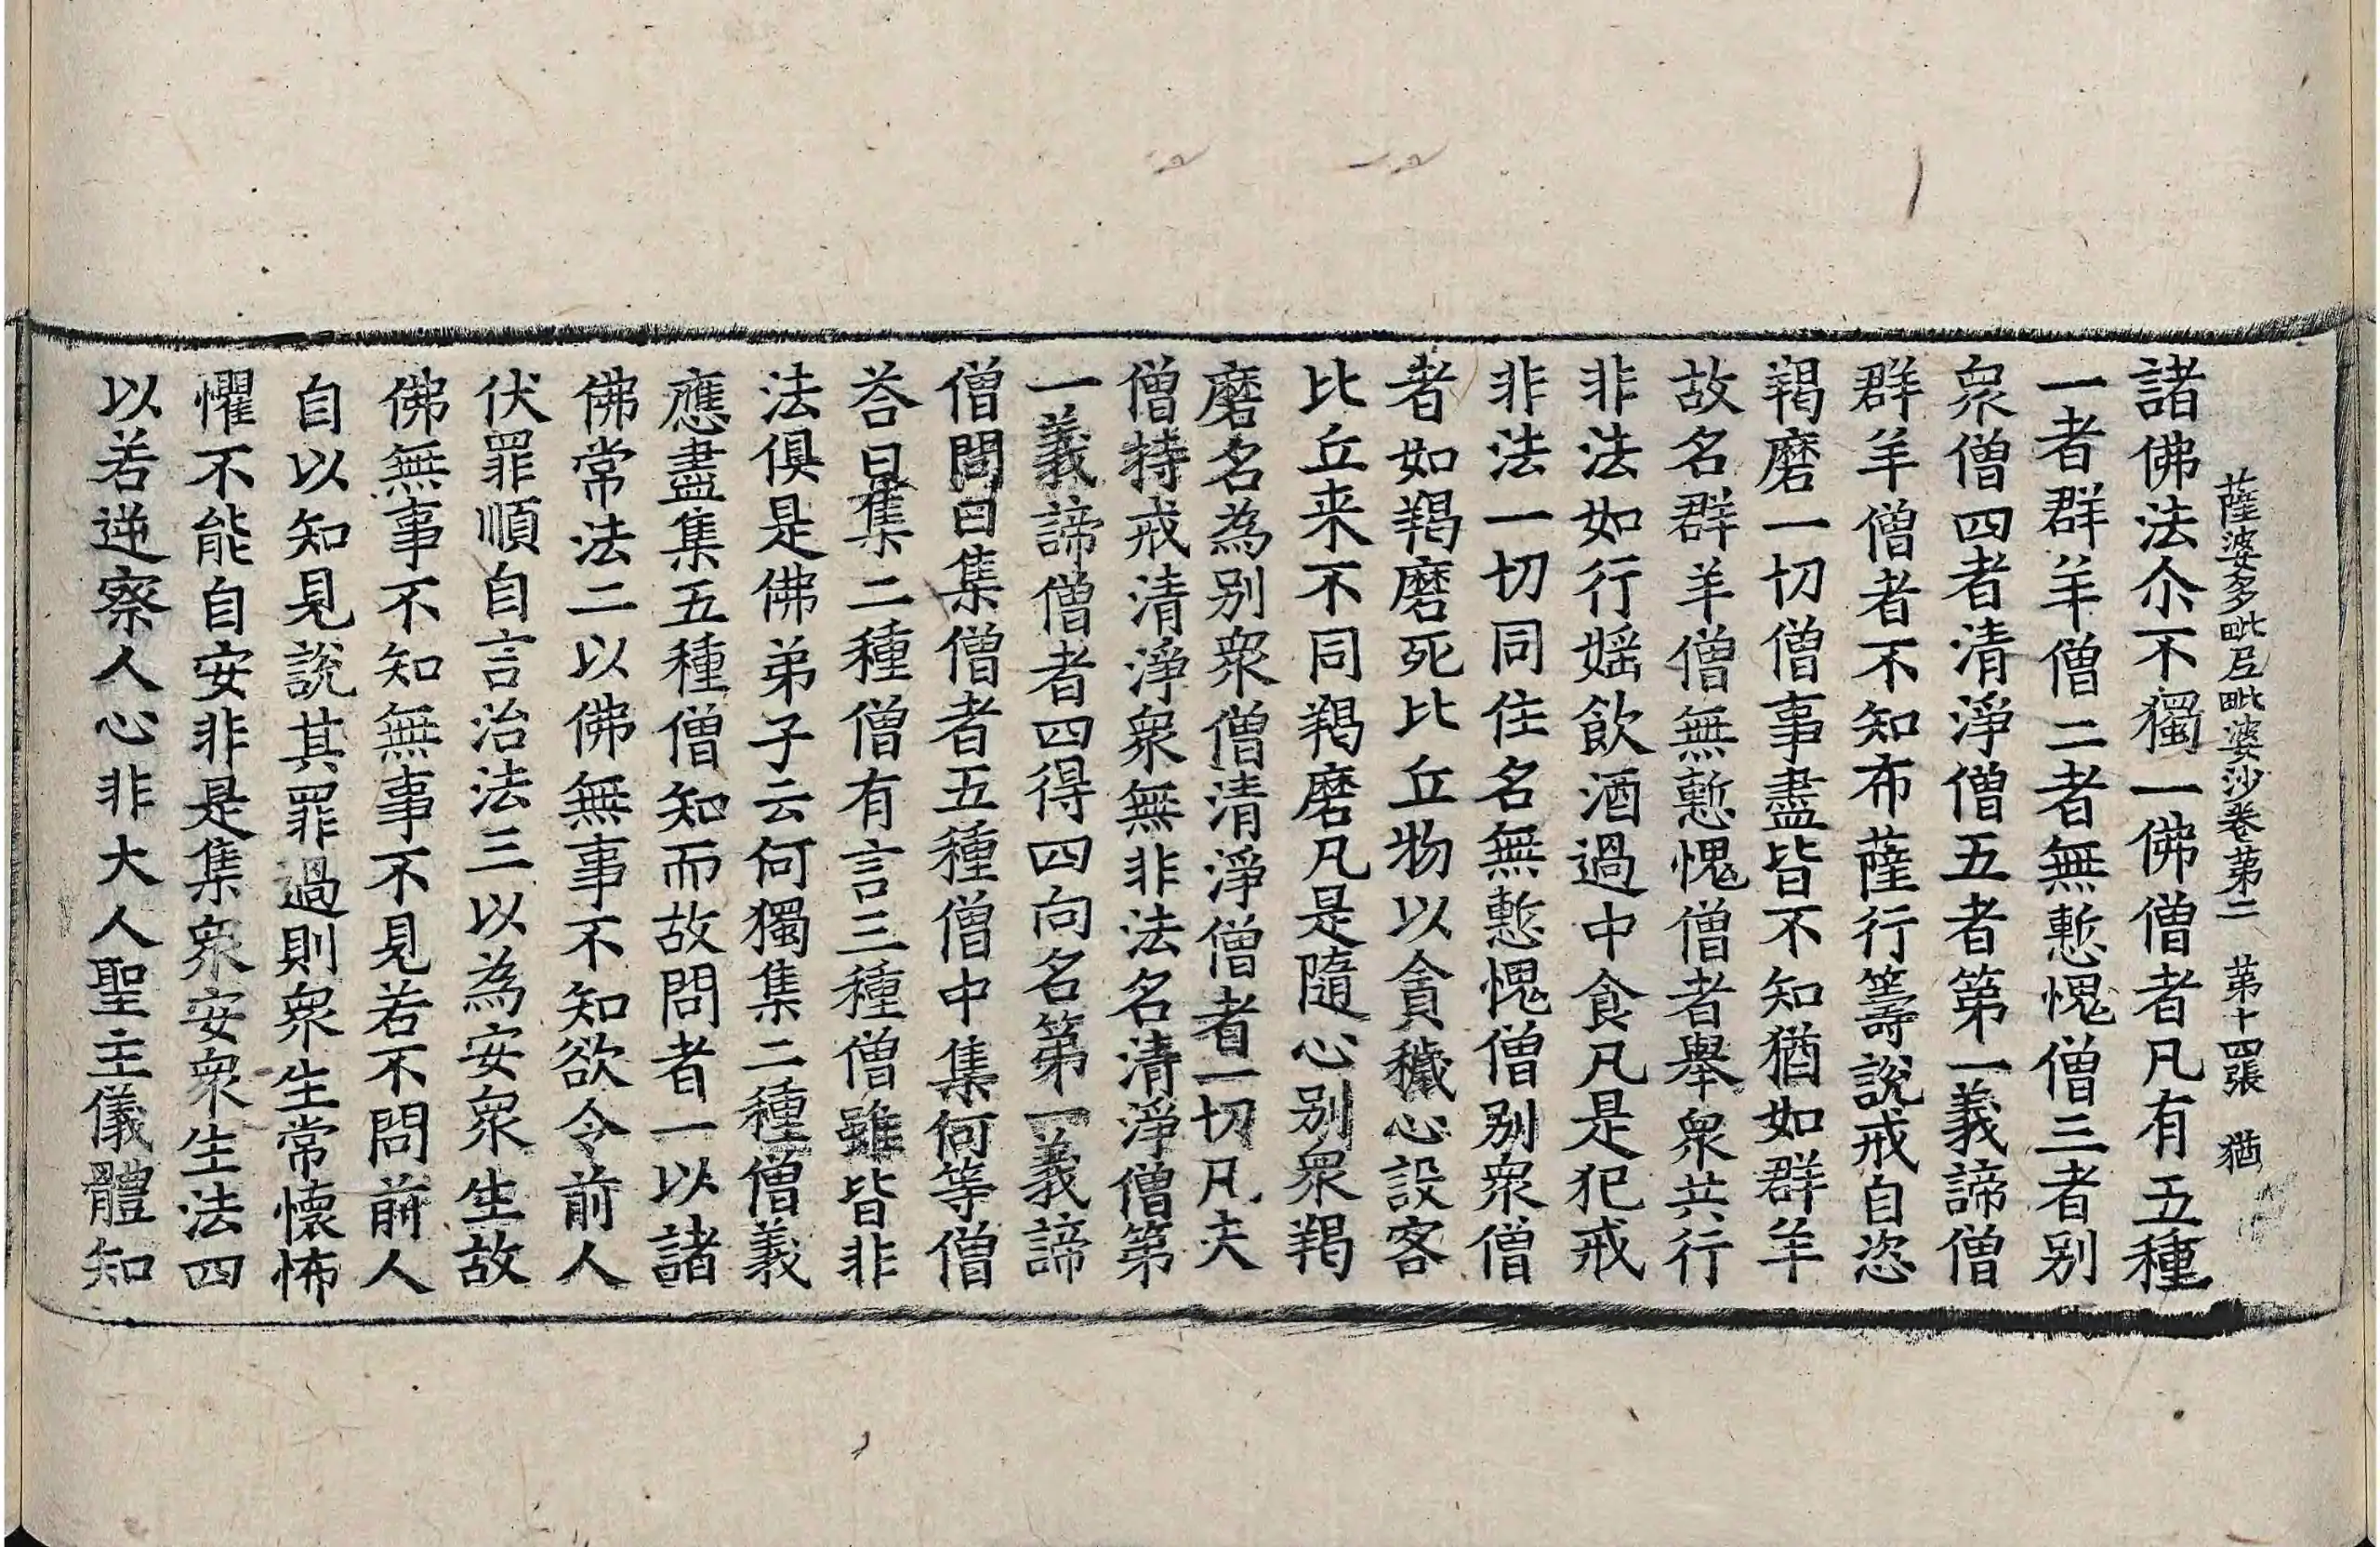 薩婆多毗尼毗婆沙卷第二 第十四張 猶
諸佛法尒不獨一佛僧者凡有五種
一者群羊僧二者無慙愧僧三者别
衆僧四者清淨僧五者第一義諦僧
群羊僧者不知布薩行籌說戒自恣
羯磨一切僧事盡皆不知猶如群羊
故名群羊僧無慙愧僧者舉衆共行
非法如行婬飲酒過中食凡是犯戒
非法一切同住名無慙愧僧别衆僧
者如羯磨死比丘物以貪穢心設客
比丘来不同羯磨凡是隨心别衆羯
磨名為别衆僧清淨僧者一切凡夫
僧持戒清淨衆無非法名清淨僧第
一義諦僧者四得四向名第一義諦
僧問曰集僧者五種僧中集何等僧
荅曰集二種僧有言三種僧雖皆非
法俱是佛弟子云何獨集二種僧義
應盡集五種僧知而故問者一以諸
佛常法二以佛無事不知欲令前人
伏罪順自言治法三以為安衆生故
佛無事不知無事不見若不問前人
自以知見說其罪過則衆生常懷怖
懼不能自安非是集衆安衆生法四
以若逆察人心非大人聖主儀體知